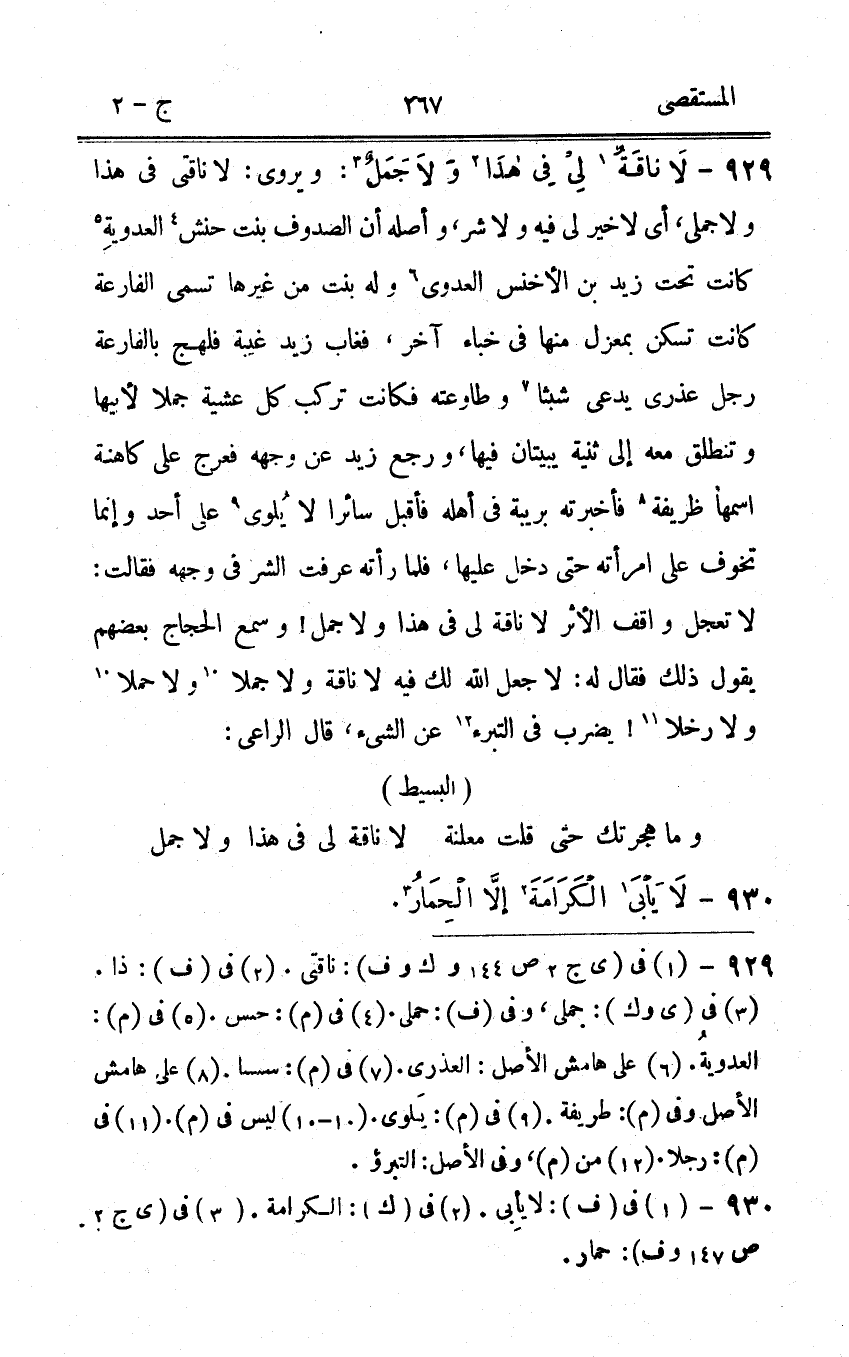 المستقصى ٣٦٧ ج - ٢
٩٢٩ - لَا ناقَةٌ ١ لِيْ فِي هٰذَا ٢ وَ لَا جَمَلٌ ٣: و يروى: لا ناقتى فى هذا
و لاجملى، أى لاخير لى فيه و لاشر، و أصله أن الصدوف بنت حنش ٤ العدويةِ ٥
كانت تحت زيد بن الأخنس العدوى ٦ و له بنت من غيرها تسمى الفارعة
كانت تسكن بمعزل منها فى خباء آخر ، فغاب زيد غيبة فلهج بالفارعة
رجل عذرى يدعى شبثا ٧ و طاوعته فكانت تركب كل عشية جملا لأبيها
و تنطلق معه إلى ثنية يبيتان فيها، و رجع زيد عن وجهه فعرج على كاهنة
اسمها ظريفة ٨ فأخبرته بريبة فى أهله فأقبل سائرا لا يُلوى ٩ على أحد و إنما
تخوف على امرأته حتى دخل عليها، فلما رأته عرفت الشر فى وجهه فقالت:
لا تعجل و اقف الأثر لا ناقة لى فى هذا و لا جمل! و سمع الحجاج بعضهم
يقول ذلك فقال له: لا جعل الله لك فيه لا ناقة و لا جملا ١٠ و لا حملا ١٠
و لا رخلا ١١ ! يضرب فى التبرء ١٢ عن الشىء، قال الراعى:
( البسيط )
و ما هجرتك حتى قلت معلنة لا ناقة لى فى هذا و لا جمل
٩٣٠ - لَا يَأْبَى ١ الْكَرَامَةَ ٢ إلَّا الْحِمَارُ ٣.
٩٢٩ - (١) فى (ى ج ٢ ص ١٤٤ و ك و ف): ناقتى . (٢) فى ( ف ) : ذا .
(٣) فى ( ى و ك ) : جملى، و فى (ف): حملى.(٤) فى (م): حسس .(٥) فى (م) :
العدويةُ. (٦) على هامش الأصل : العذرى.(٧) فى (م): سسا .(٨) على هامش
الأصل وفى (م): طريفة .(٩) فى (م): يَلوى.(١٠-١٠) ليس فى (م).(١١) فى
(م): رجلا.(١٢) من (م)، وفى الأصل: التبرؤ .
٩٣٠ - (١) فى ( ف ) : لايأبِى . (٢) فى ( ك ) : الكرامة . ( ٣ ) فى ( ى ج ٢
ص ١٤٧ و ف): حمار .